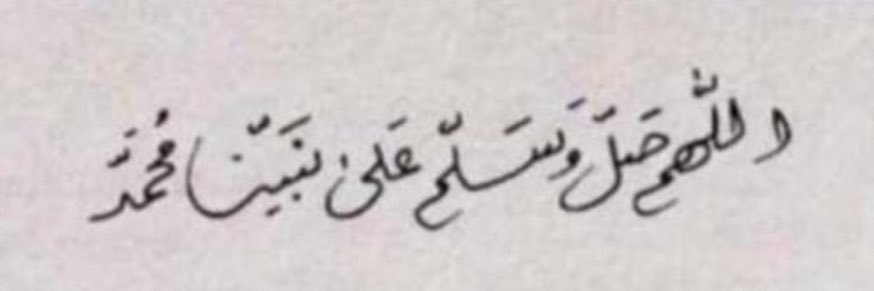 اللّهم صَلّ وَسَلّم عَلى نبَيّنا مُحمَّد